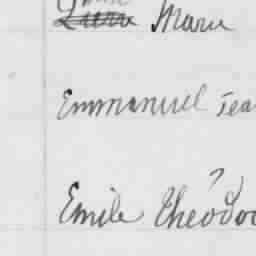 Marie
Emmanuel Jea
Emile Théodo